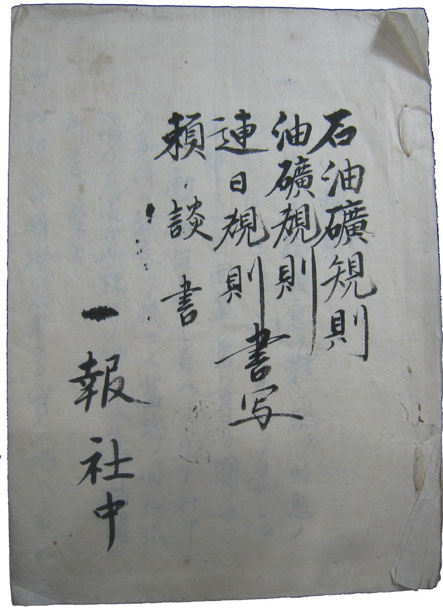 石油礦規則
油礦規則
連日規則 書写
頼談書
一報社中